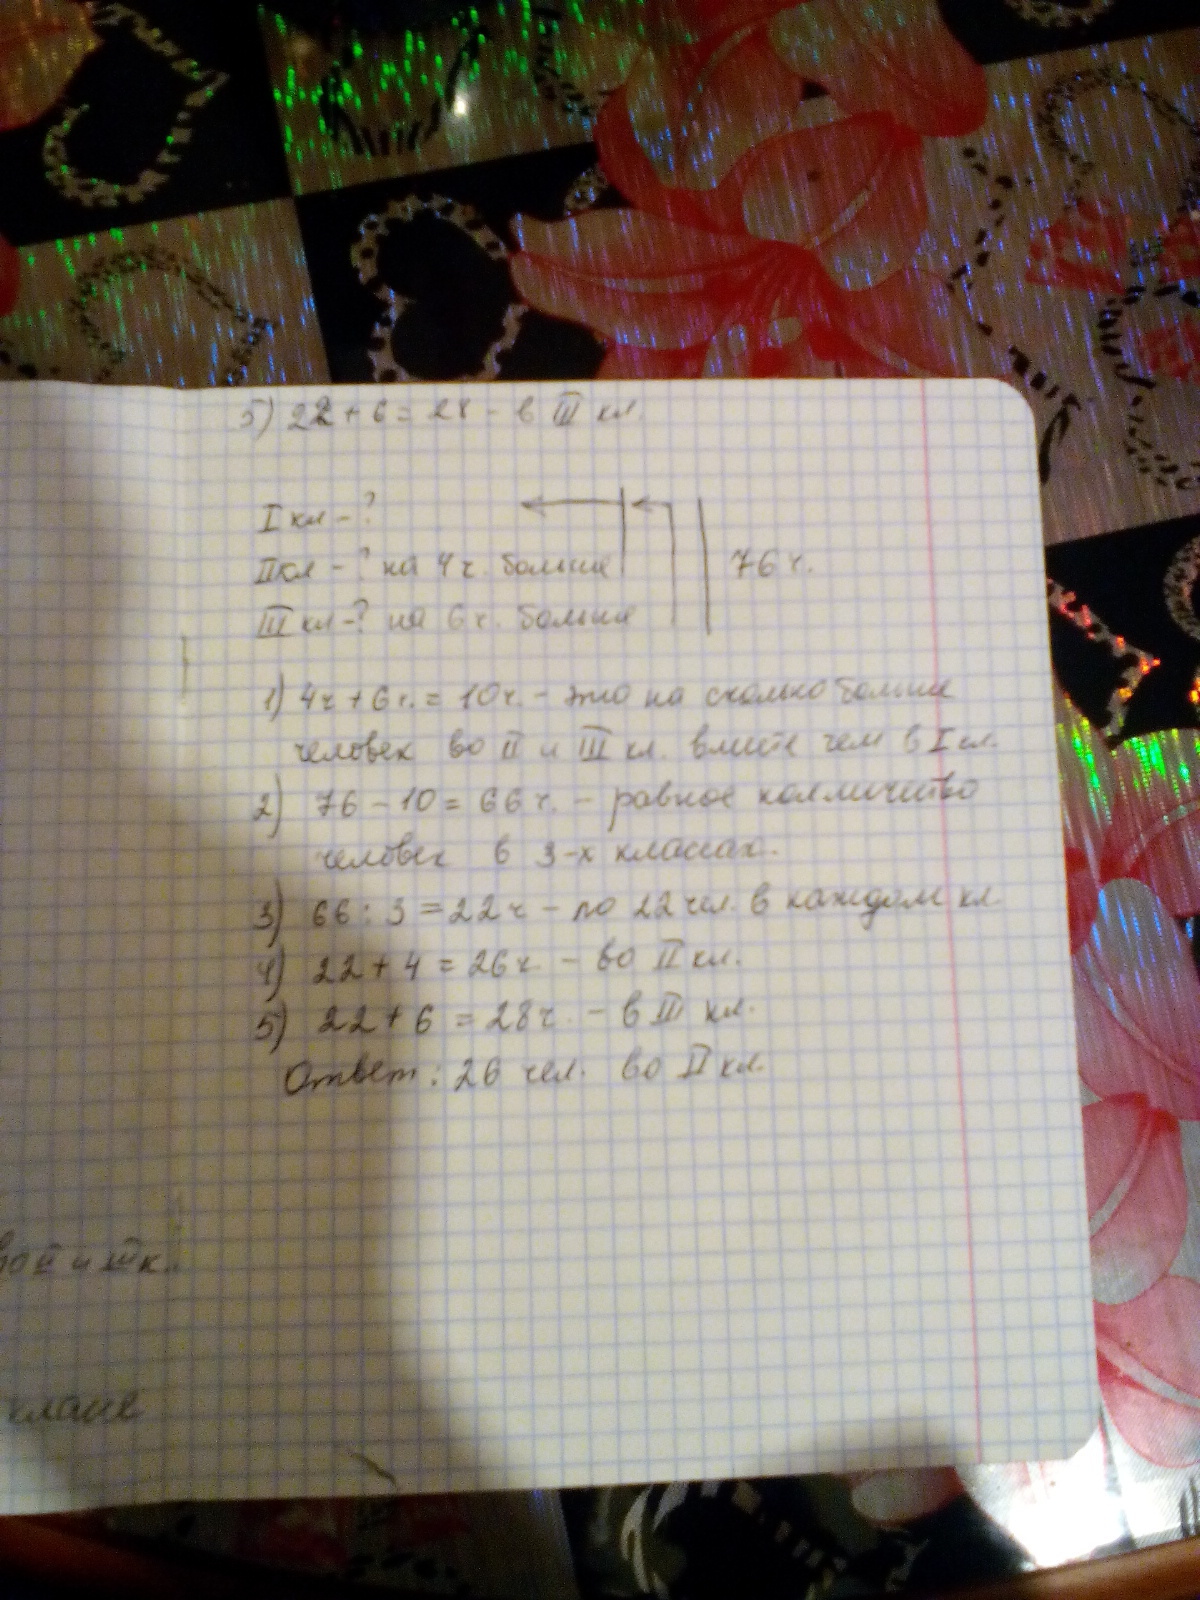 5) 22 + 6 = 28 - в III кл.
I кл - ?
II кл - ? на 4 ч. больше
76 ч.
III кл - ? на 6 ч. больше
1) 4ч + 6ч. = 10ч. - это на сколько больше
человек во II и III кл. вместе чем в I кл.
2) 76 - 10 = 66ч. - равное колличество
человек в 3-х классах.
3) 66 : 3 = 22ч - по 22 чел. в каждом кл.
4) 22 + 4 = 26ч. - во II кл.
5) 22 + 6 = 28ч. - в III кл.
Ответ : 26 чел. во II кл.
во II и III к.
классе